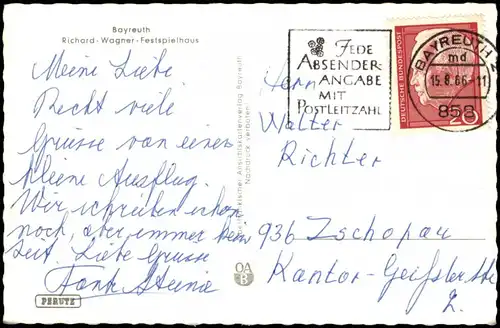 Bayreuth
Richard-Wagner-Festspielhaus
Meine Liebe
Recht viele
Grüsse von einer
kleine Ausflug.
Wir schreiben schon
noch, aber immer keine
Zeit. Liebe Grüsse
PERUTZ
OA
B
Nachdruck verboten
JEDE
ABSENDER-
ANGABE
MIT
POSTLEITZAHL
BAYREUTH 2
md
15.8.66-11
858
DEUTSCHE BUNDESPOST
20
Herrn
Walter
Richter
936 Zschopau
Kantor-Geißler-Str
2.